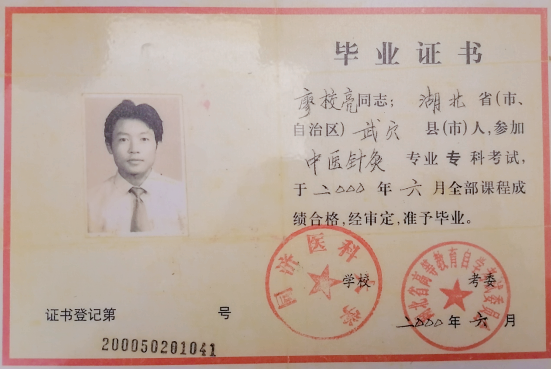 毕业证书
廖校亮同志；湖北省(市、
自治区)武穴县(市)人，参加
中医针灸专业专科考试，
于二〇〇〇年六月全部课程成
绩合格，经审定，准予毕业。
同济医科大学
学校
湖北省高等教育自学考试委员会
考委
二〇〇〇年六月
证书登记第 号
200050201041